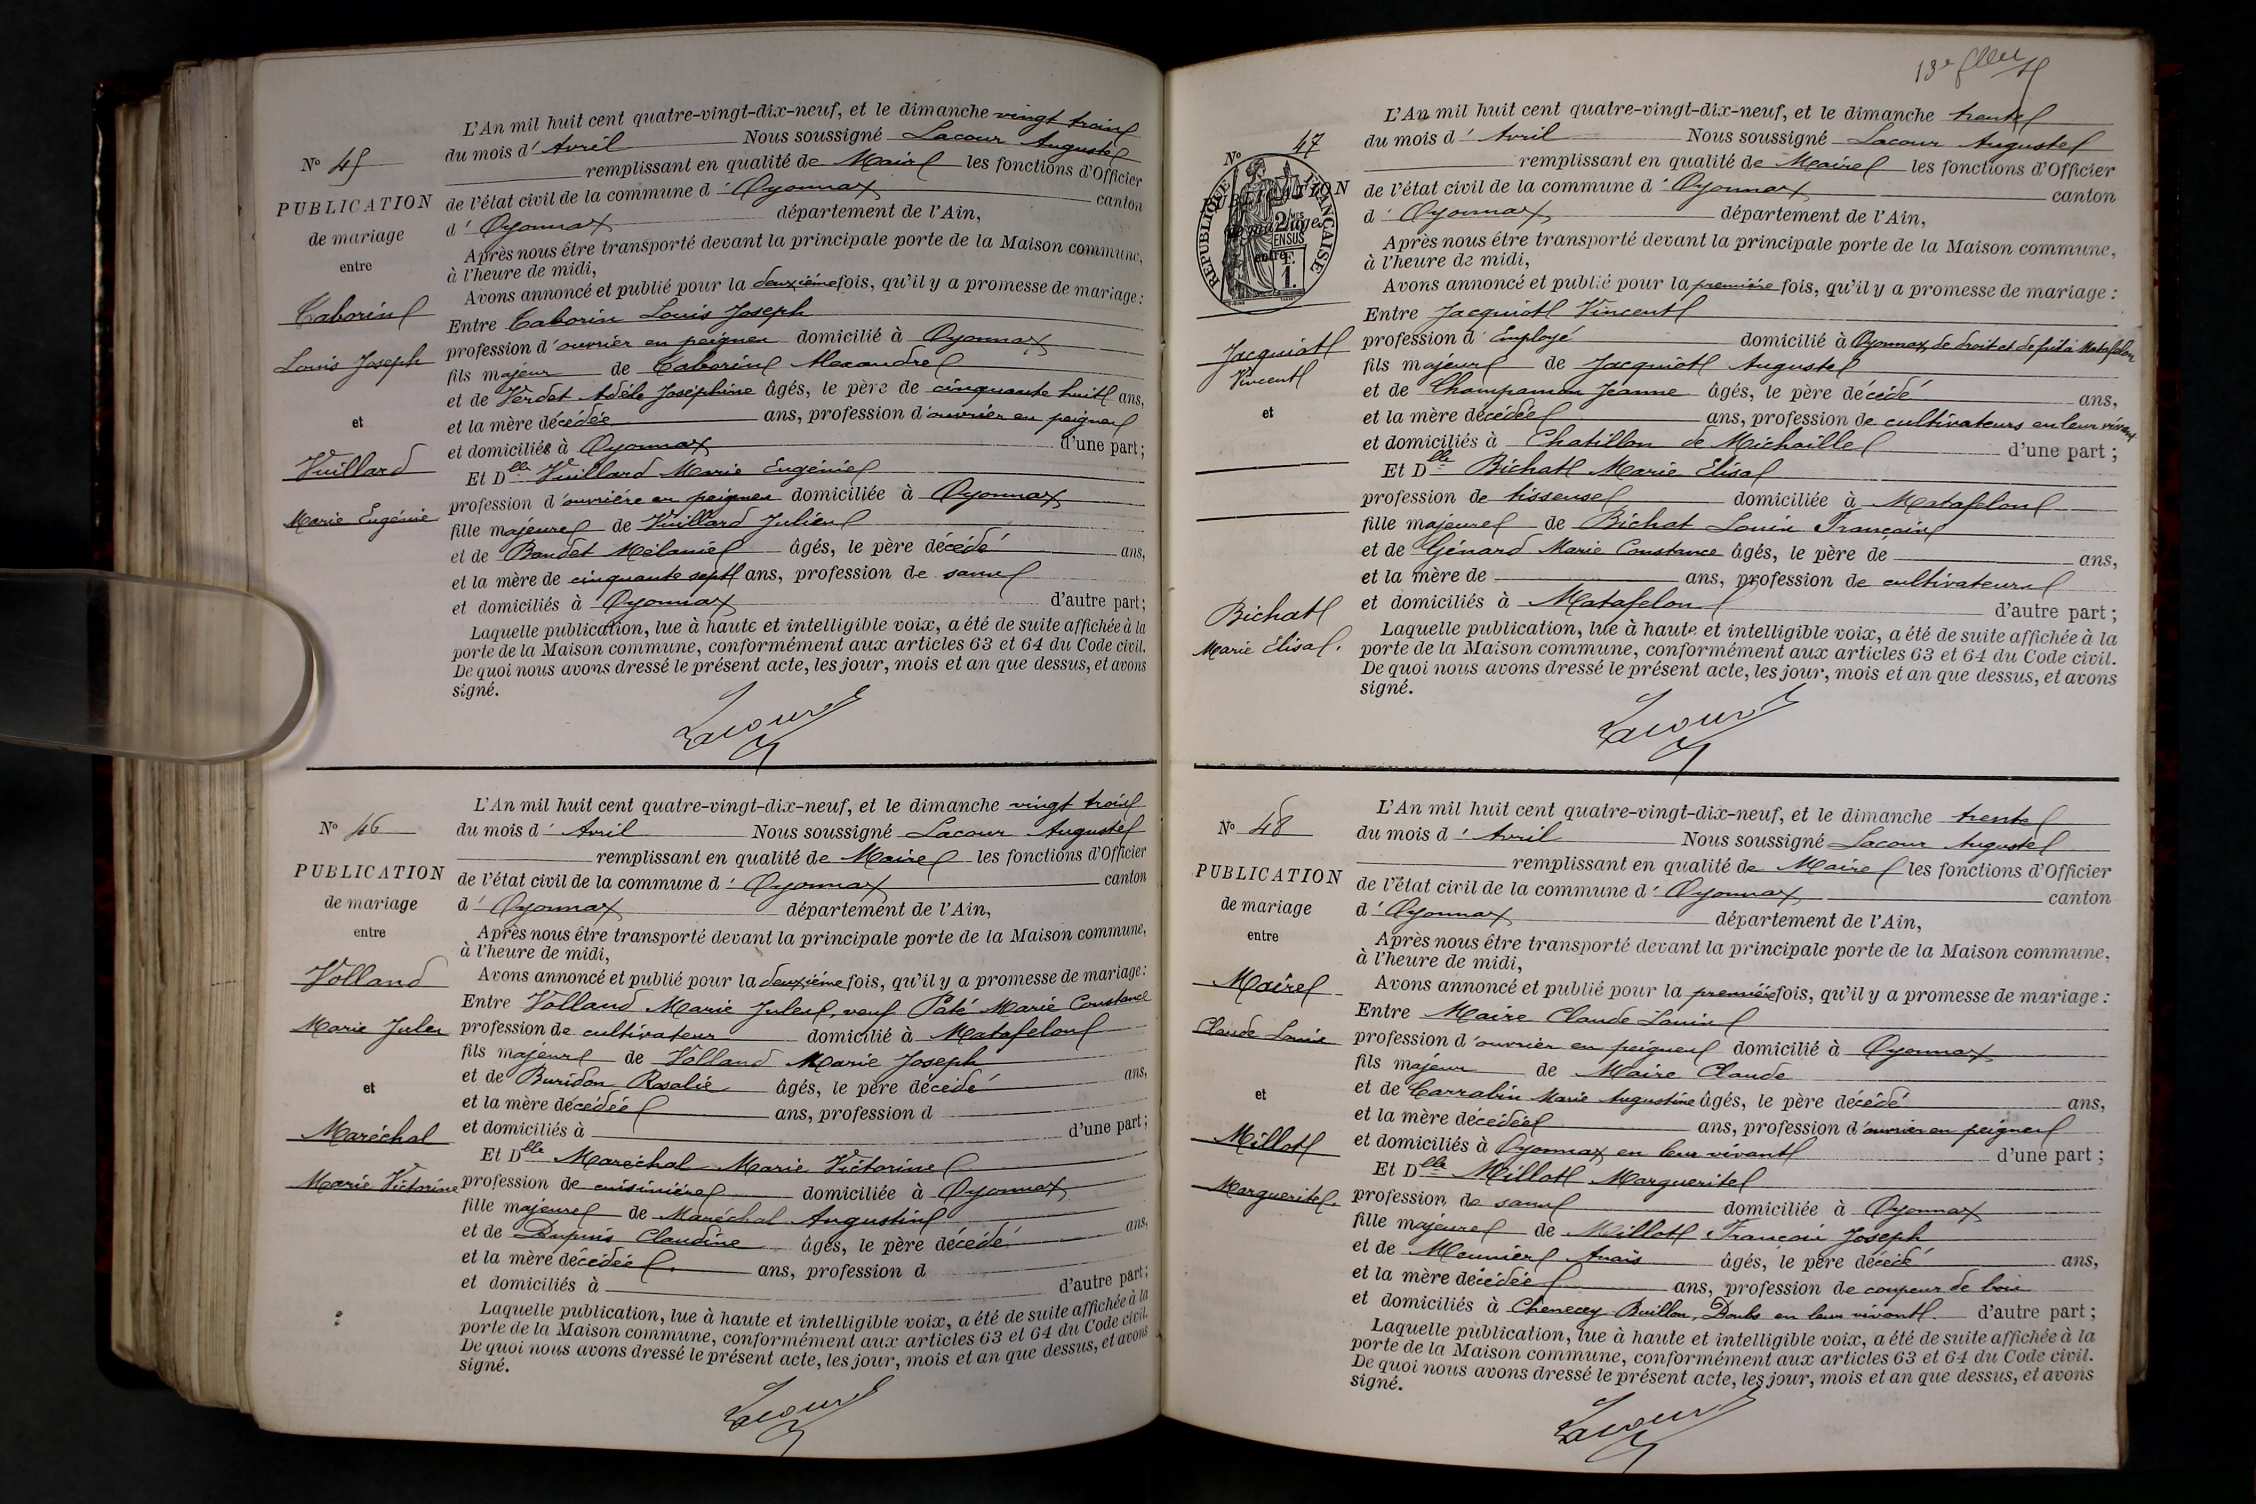 N° 45
PUBLICATION
de mariage
entre
Taborin
Louis Joseph
et
Vuillard
Marie Eugénie
L'An mil huit cent quatre-vingt-dix-neuf, et le dimanche vingt trois
du mois d' Avril Nous soussigné Lacour Auguste
remplissant en qualité de Maire les fonctions d'Officier
de l'état civil de la commune d' Oyonnax canton
d' Oyonnax département de l'Ain,
Après nous être transporté devant la principale porte de la Maison commune,
à l'heure de midi,
Avons annoncé et publié pour la deuxième fois, qu'il y a promesse de mariage :
Entre Taborin Louis Joseph
profession d'ouvrier en peignes domicilié à Oyonnax
fils majeur de Taborin Alexandre
et de Verdet Adèle Joséphine âgés, le père de cinquante huit ans,
et la mère décédée ans, profession d'ouvrier en peignes
et domiciliés à Oyonnax d'une part ;
Et Dlle Vuillard Marie Eugénie
profession d'ouvrière en peignes domiciliée à Oyonnax
fille majeure de Vuillard Julien
et de Baudet Mélanie âgés, le père décédé ans,
et la mère de cinquante sept ans, profession de sans
et domiciliés à Oyonnax d'autre part ;
Laquelle publication, lue à haute et intelligible voix, a été de suite affichée à la
porte de la Maison commune, conformément aux articles 63 et 64 du Code civil.
De quoi nous avons dressé le présent acte, les jour, mois et an que dessus, et avons
signé.
Lacour
N° 46
PUBLICATION
de mariage
entre
Volland
Marie Jules
et
Maréchal
Marie Victorine
L'An mil huit cent quatre-vingt-dix-neuf, et le dimanche vingt trois
du mois d' Avril Nous soussigné Lacour Auguste
remplissant en qualité de Maire les fonctions d'Officier
de l'état civil de la commune d' Oyonnax canton
d' Oyonnax département de l'Ain,
Après nous être transporté devant la principale porte de la Maison commune,
à l'heure de midi,
Avons annoncé et publié pour la deuxième fois, qu'il y a promesse de mariage :
Entre Volland Marie Jules, veuf Paté Marie Constance
profession de cultivateur domicilié à Matafelon
fils majeur de Volland Marie Joseph
et de Buridon Rosalie âgés, le père décédé ans,
et la mère décédée ans, profession d
et domiciliés à d'une part ;
Et Dlle Maréchal Marie Victorine
profession de cuisinière domiciliée à Oyonnax
fille majeure de Maréchal Augustin
et de Dupuis Claudine âgés, le père décédé ans,
et la mère décédée ans, profession d
et domiciliés à d'autre part ;
Laquelle publication, lue à haute et intelligible voix, a été de suite affichée à la
porte de la Maison commune, conformément aux articles 63 et 64 du Code civil.
De quoi nous avons dressé le présent acte, les jour, mois et an que dessus, et avons
signé.
Lacour
13e
N° 47
PUBLICATION
de mariage
entre
RÉPUBLIQUE FRANÇAISE
2 MES
EN SUS
F.
1.
Jacquiot
Vincent
et
Bichat
Marie Elisa.
L'An mil huit cent quatre-vingt-dix-neuf, et le dimanche trente
du mois d' Avril Nous soussigné Lacour Auguste
remplissant en qualité de Maire les fonctions d'Officier
de l'état civil de la commune d' Oyonnax canton
d' Oyonnax département de l'Ain,
Après nous être transporté devant la principale porte de la Maison commune,
à l'heure de midi,
Avons annoncé et publié pour la première fois, qu'il y a promesse de mariage :
Entre Jacquiot Vincent
profession d' Employé domicilié à Oyonnax de droit et de fait à Matafelon
fils majeur de Jacquiot Auguste
et de Champanon Jeanne âgés, le père décédé ans,
et la mère décédée ans, profession de cultivateurs en leur vivant
et domiciliés à Chatillon de Michaille d'une part ;
Et Dlle Bichat Marie Elisa
profession de tisseuse domiciliée à Matafelon
fille majeure de Bichat Louis François
et de Génard Marie Constance âgés, le père de ans,
et la mère de ans, profession de cultivateurs
et domiciliés à Matafelon d'autre part ;
Laquelle publication, lue à haute et intelligible voix, a été de suite affichée à la
porte de la Maison commune, conformément aux articles 63 et 64 du Code civil.
De quoi nous avons dressé le présent acte, les jour, mois et an que dessus, et avons
signé.
Lacour
N° 48
PUBLICATION
de mariage
entre
Maire
Claude Louis
et
Millot
Marguerite.
L'An mil huit cent quatre-vingt-dix-neuf, et le dimanche trente
du mois d' Avril Nous soussigné Lacour Auguste
remplissant en qualité de Maire les fonctions d'Officier
de l'état civil de la commune d' Oyonnax canton
d' Oyonnax département de l'Ain,
Après nous être transporté devant la principale porte de la Maison commune,
à l'heure de midi,
Avons annoncé et publié pour la première fois, qu'il y a promesse de mariage :
Entre Maire Claude Louis
profession d'ouvrier en peignes domicilié à Oyonnax
fils majeur de Maire Claude
et de Carrabin Marie Augustine âgés, le père décédé ans,
et la mère décédée ans, profession d'ouvrier en peignes
et domiciliés à Oyonnax en leur vivant d'une part ;
Et Dlle Millot Marguerite
profession de sans domiciliée à Oyonnax
fille majeure de Millot François Joseph
et de Meunier Anaïs âgés, le père décédé ans,
et la mère décédée ans, profession de coupeur de bois
et domiciliés à Chenecey Buillon, Doubs en leur vivant. d'autre part ;
Laquelle publication, lue à haute et intelligible voix, a été de suite affichée à la
porte de la Maison commune, conformément aux articles 63 et 64 du Code civil.
De quoi nous avons dressé le présent acte, les jour, mois et an que dessus, et avons
signé.
Lacour